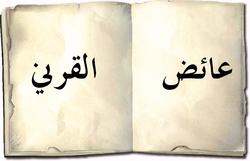 عائض القرني